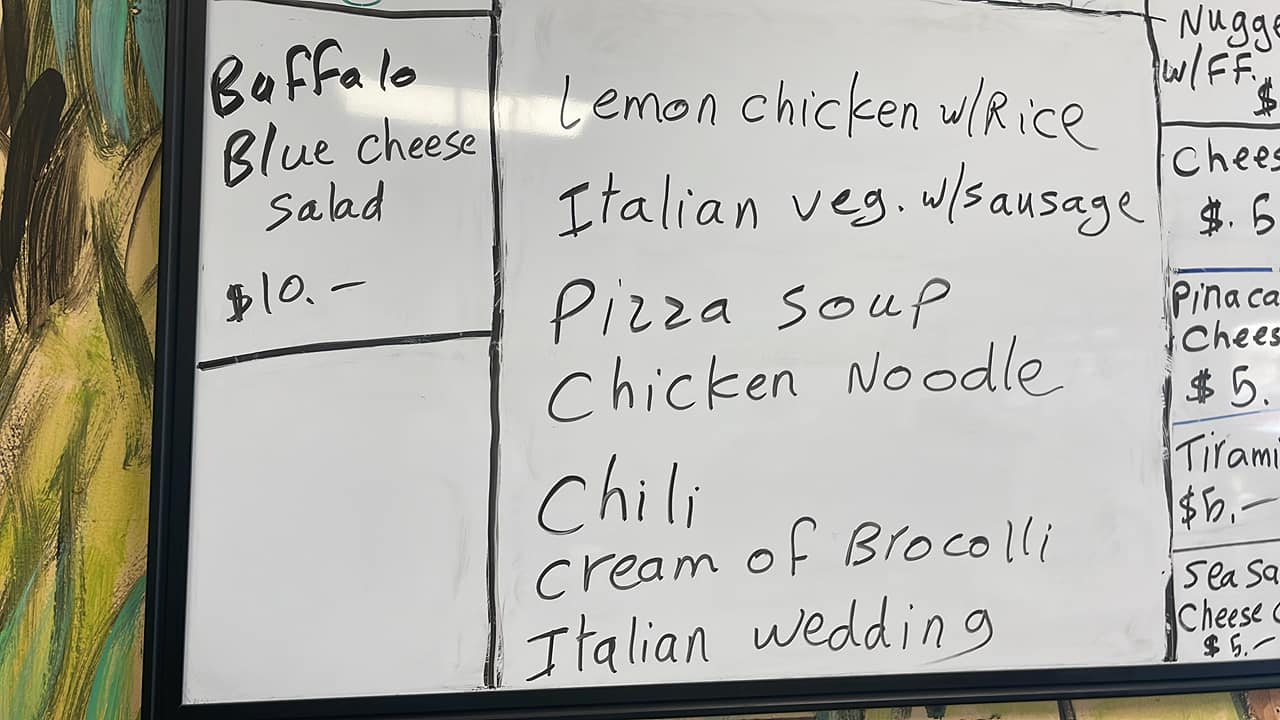 Buffalo
Blue cheese
salad
$10.-
Lemon chicken w/Rice
Italian veg. w/sausage
Pizza soup
Chicken Noodle
Chili
cream of Brocolli
Italian wedding
Nugge
w/FF.
$
Chees
$.5
Pinaca
Chees
$5.
Tirami
$5.-
Sea Sa
Cheese
$5.-